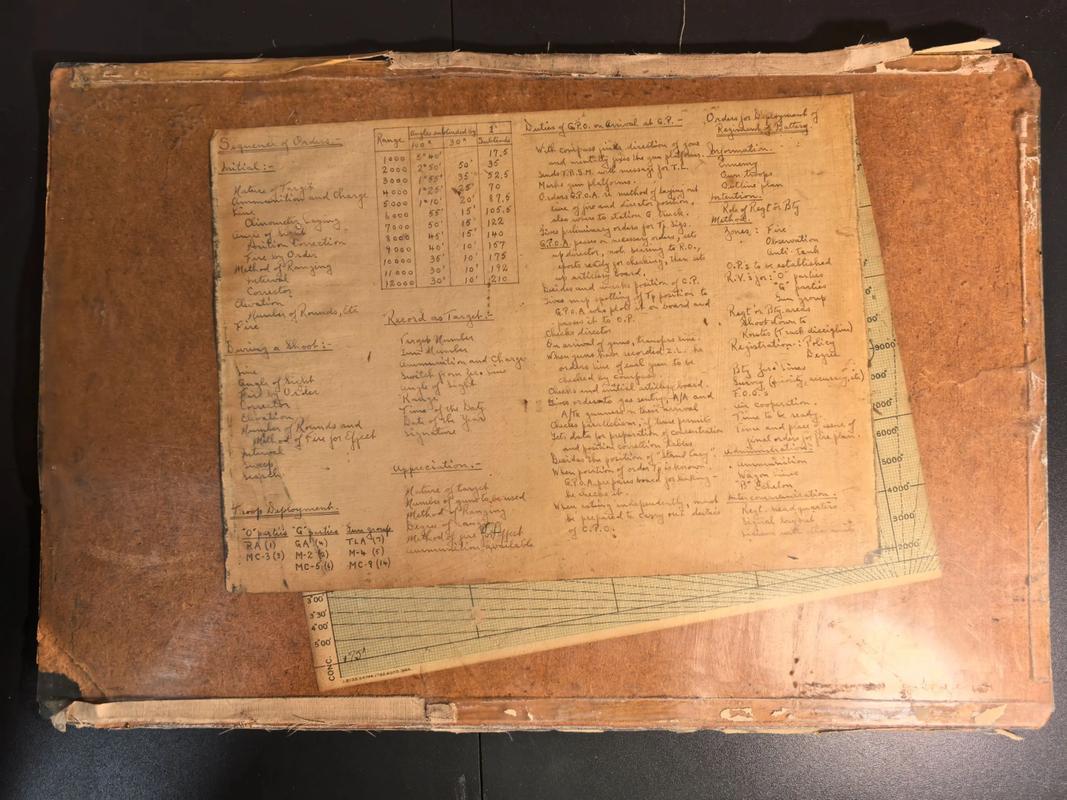 Sequence of Orders:-
Initial:-
Nature of Target
Ammunition and Charge
Line
Aiming, Laying
Angle of Sight
Fire by Order
Method of Ranging
Interval
Corrector
Elevation
Number of Rounds, Etc
Fire
During a Shoot:-
Line
Angle of Sight
Fire by Order
Corrector
Elevation
Number of Rounds and
Method of Fire for Effect
Interval
Sweep
Search
Troop Deployment:
"O" parties "G" parties Gun group
RA (1) GA (4) TLA (7)
MC-3(3) M-2 M-4 (5)
MC-5(6) MC-9 (14)
Range Angles subtended by 1°
100ˣ 30ˣ Subtends
1000 5°40' 17.5
2000 2°50' 50' 35
3000 1°55' 35' 52.5
4000 1°25' 25' 70
5000 1°10' 20' 87.5
6000 55' 15' 105.5
7000 50' 15' 122
8000 45' 15' 140
9000 40' 10' 157
10000 35' 10' 175
11000 30' 10' 192
12000 30' 10' 210
Record as Target:-
Target Number
Gun Number
Ammunition and Charge
Switch from Zero Line
Angle of Sight
Range
Time of the Day
Date of the Year
Signature
Appreciation:-
Nature of target
Number of guns to be used
Method of Ranging
Degree of
Method of fire for Effect
Ammunition available
Duties of G.P.O. on Arrival at G.P.-
With compass finds direction of guns
and mentally gives the gun platforms.
Sends T.B.S.M. with message for T.L.
Marks gun platforms.
Orders G.P.O.A. re method of laying out
line of fire and director position,
also where to station G Truck.
Gives preliminary orders for Tp. Sigs.
G.P.O.A. passes on necessary orders, sets
up director, notes bearing to R.O.,
reports ready for checking, then sets
up artillery board.
Decides and marks position of C.P.
Gives map spotting of Tp position to
G.P.O.A who plots it on board and
passes it to O.P.
Checks director
On arrival of guns, transfers line.
When guns have recorded Z.L. he
orders line of each gun to be
checked by compass
Checks and initials artillery board.
Gives orders to gas sentry, A/A and
A/Tk gunners on their arrival
Checks parallelism, if time permits
Gets data for preparation of concentration
and position correction tables
Decides the position of "Stand Easy".
When position of order Tp is known,
G.P.O.A. prepares board for
he checks it.
When acting independently, must
be prepared to carry out duties
of C.P.O.
Orders for Deployment of
Regiment or Battery.
Information.
Enemy
Own troops
Outline plan
Intention.
Role of Regt or Bty
Method.
Zones: Fire
Observation
Anti-Tank
O.P.s to be established
R.V.s for: "O" parties
"G" parties
Gun group
Regt or Bty areas
Shoot down to
Routes (Track discipline)
Registration: Policy
Degree
Bty Zero Lines
Survey (priority, accuracy, etc)
F.O.O.s
Air cooperation.
Time to be ready.
Time and place of issue of
final orders for fire plan.
Administration:-
Ammunition
Wagon Lines
"B" Echelon
Intercommunication:
Regt. Headquarters
Signal layout
9000
8000
7000
6000
5000
4000
3000
2000
3°00'
3°30'
4°00'
5°00'
CONC.